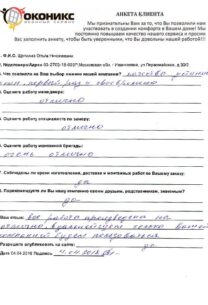 ОКОНИКС
АНКЕТА КЛИЕНТА
Мы признательны Вам за то, что Вы позволили нам
участвовать в создании комфорта в Вашем доме! Мы
постоянно повышаем качество нашего сервиса и просим
Вас заполнить анкету, чтобы быть уверенными, что Вы довольны нашей работой!!!
Ф.И.О. Ольга Николаевна
Московская обл. г Ивантеевка, ул Первомайская,
1. Что повлияло на Ваш выбор именно нашей компании? качество
2. Оцените работу менеджера:
отлично
3. Оцените работу специалиста по замеру:
отлично
4. Оцените работу монтажной бригады:
очень отлично
5. Соблюдены ли сроки изготовления, доставки и монтажных работ по Вашему заказу:
да
6. Порекомендуете ли Вы нашу компанию своим друзьям, родственникам, знакомым?
да
Ваш отзыв: вся работа произведена на
отлично,
Разрешите опубликовать на сайте: да
Дата 04.04.2018 Подпись